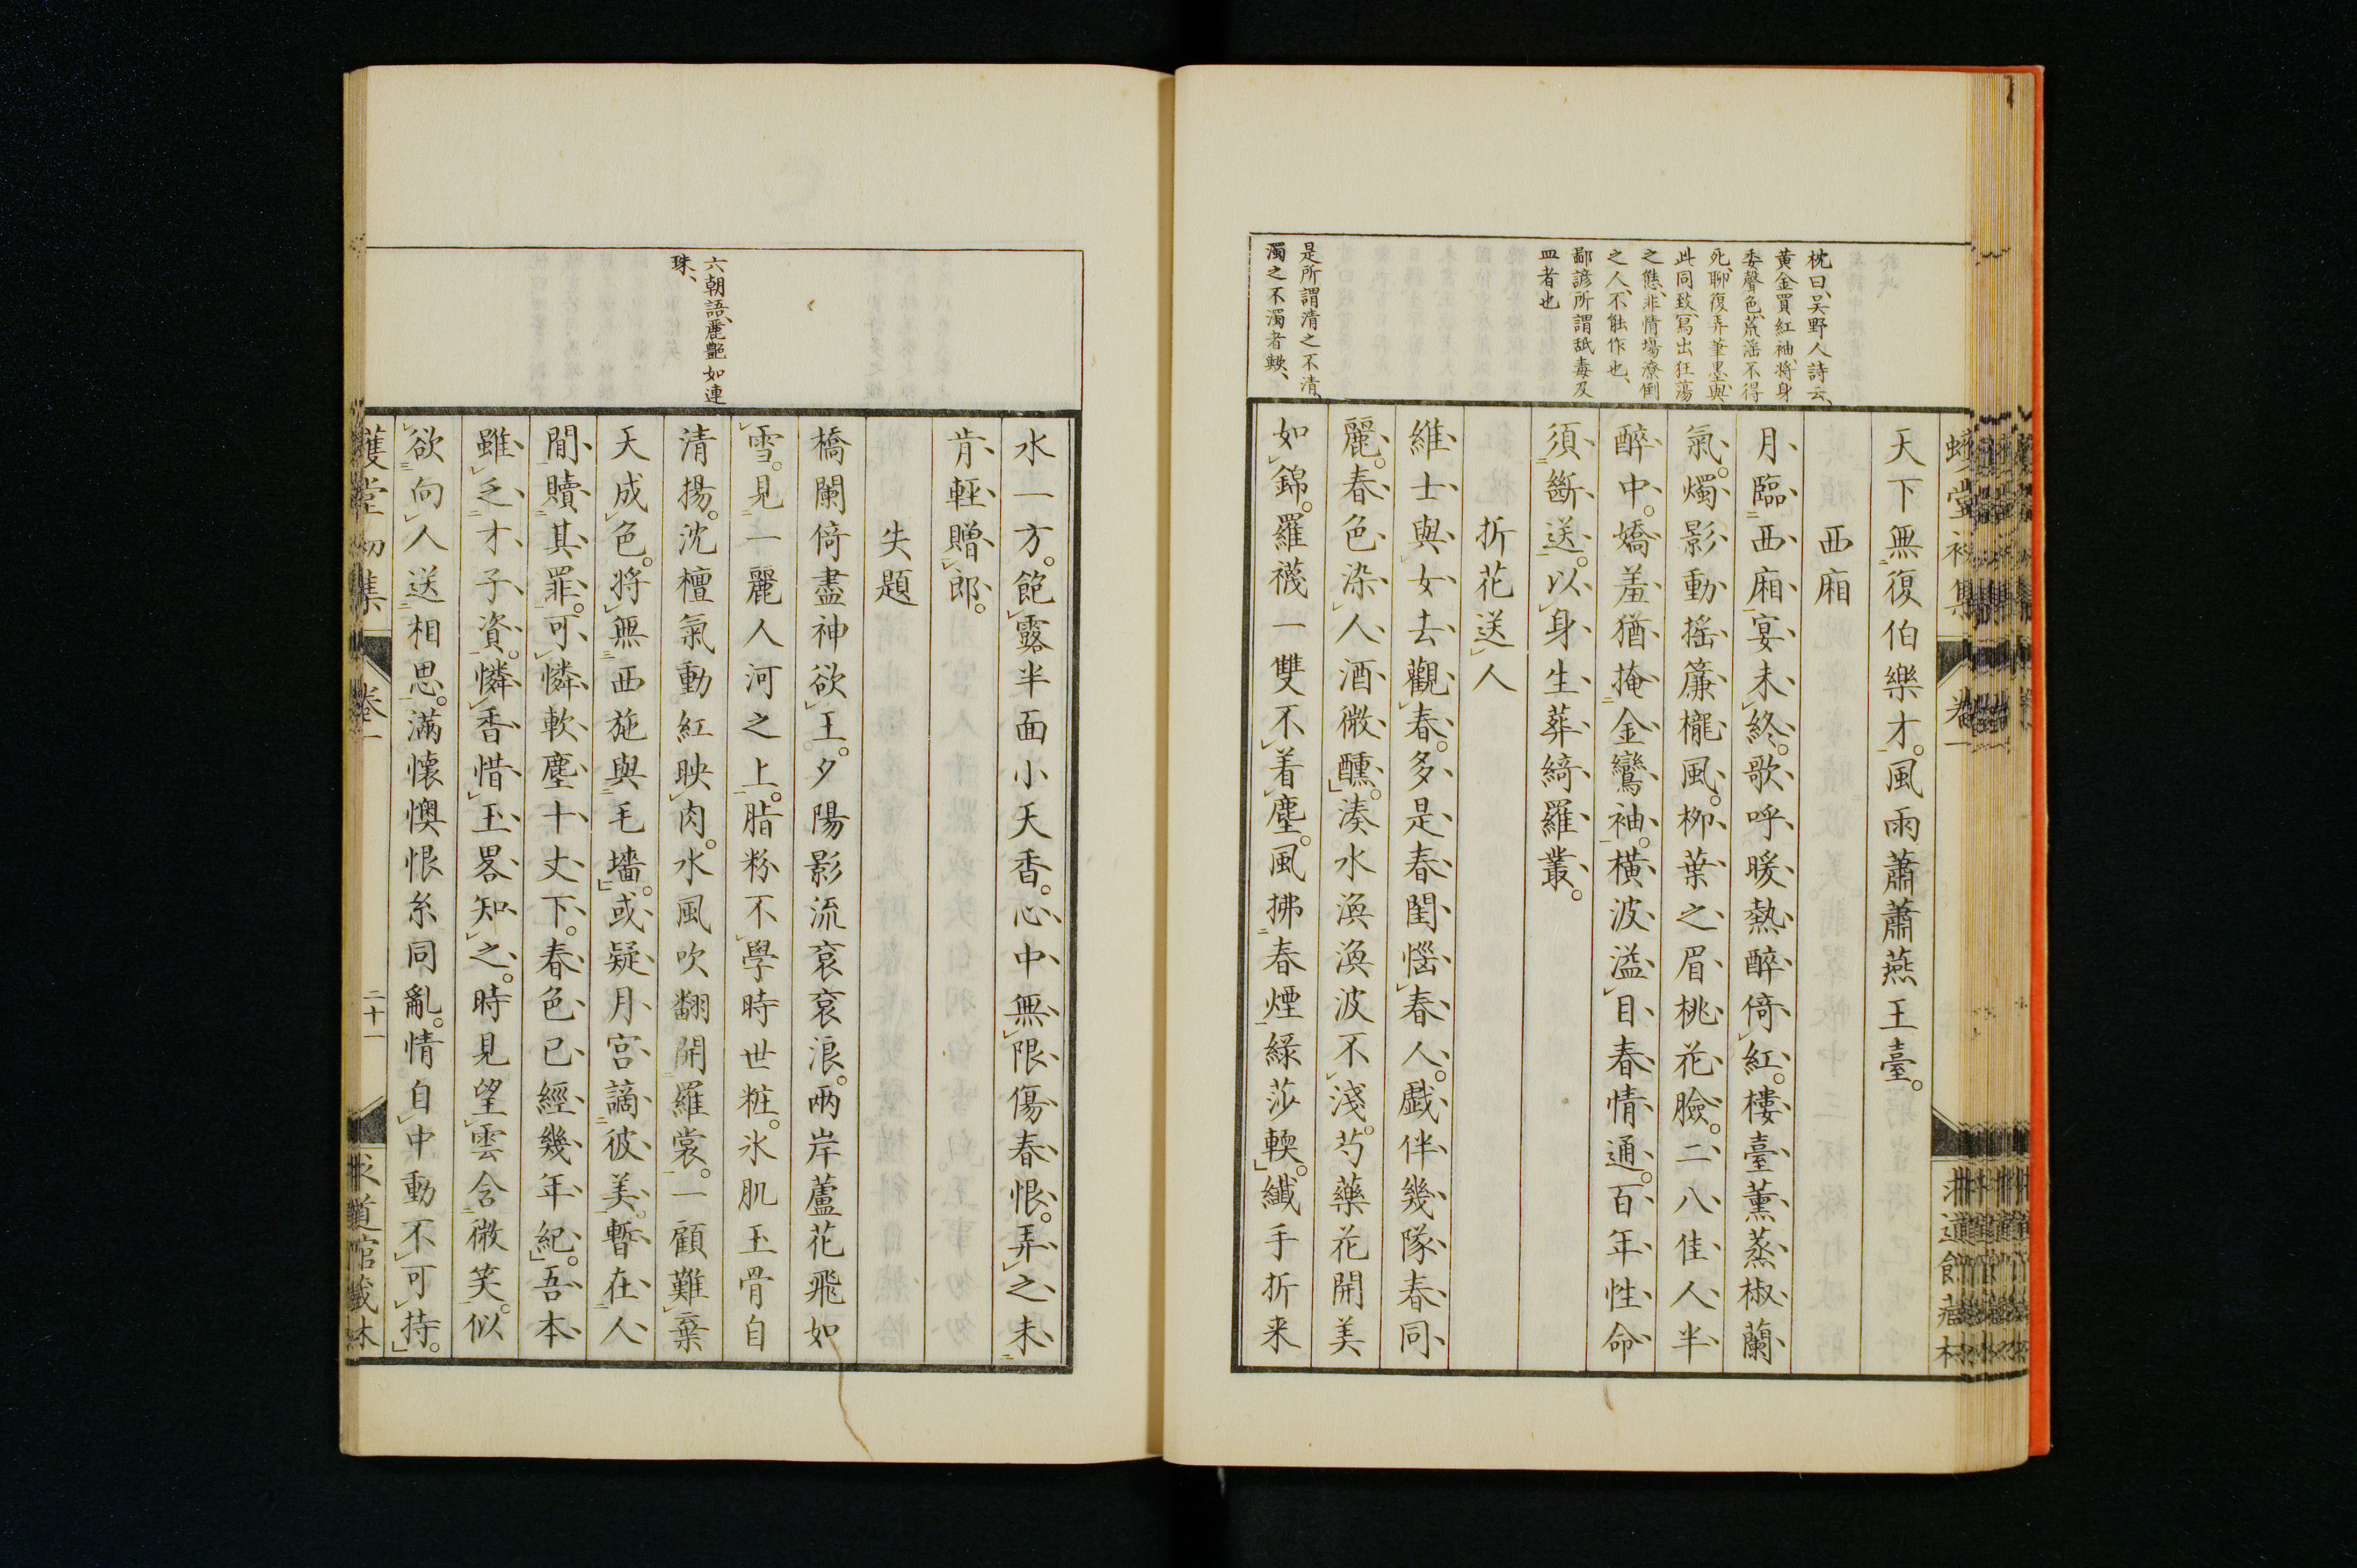 枕曰、吴野人詩云、
黄金買紅袖、将身
委聲色、荒淫不得
死、聊復弄筆墨、與
此同致、寫出狂蕩
之態、非情場潦倒
之人、不能作也、
鄙諺所謂舐毒及
皿者也
是所謂清之不清、
濁之不濁者歟、
天下無復伯樂才。風雨蕭蕭燕王臺。
西廂
月臨西廂宴未終。歌呼暖熱醉倚紅。樓臺薰蒸椒蘭
氣。燭影動搖簾櫳風。柳葉之眉桃花臉。二八佳人半
醉中。嬌羞猶掩金鸞袖。横波溢目春情通。百年性命
須斷送。以身生葬綺羅叢。
折花送人
維士與女去觀春。多是春閨惱春人。戲伴幾隊春同
麗。春色染人酒微醺。湊水渙渙波不淺。芍藥花開美
如錦。羅襪一雙不着塵。風拂春煙綠莎輭。纖手折来
六朝語、麗艷如連
珠、
水一方。飽露半面小天香。心中無限傷春恨。弄之未
肯輕贈郎。
失題
橋闌倚盡神欲王。夕陽影流衮衮浪。兩岸蘆花飛如
雪。見一麗人河之上。脂粉不學時世粧。氷肌玉骨自
清揚。沈檀氣動紅映肉。水風吹翻開羅裳。一顧難棄
天成色。将無西施與毛嬙。或疑月宮謫彼美。暫在人
間贖其罪。可憐軟塵十丈下。春色已經幾年紀。吾本
雖乏才子資。憐香惜玉畧知之。時見望雲含微笑。似
欲向人送相思。滿懷懊恨糸同亂。情自中動不可持。
卷一
二十一
求道館藏本